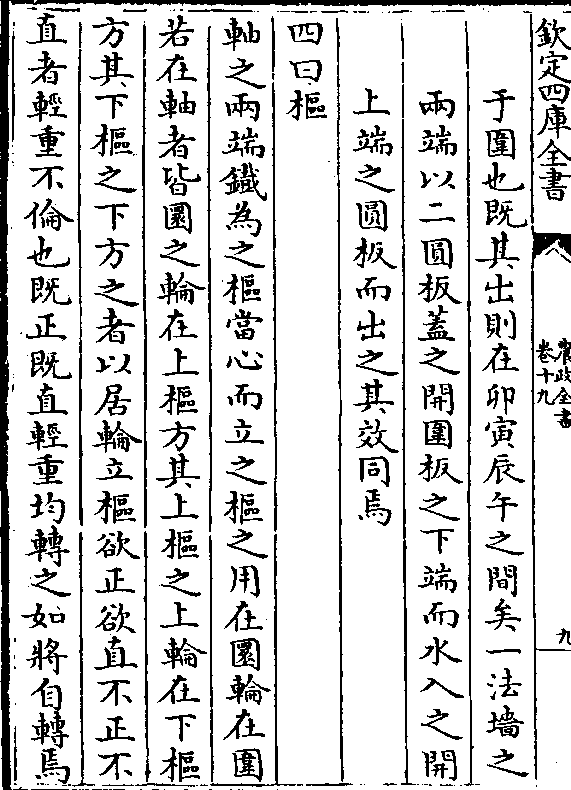 欽定四庫全書
農政全書
卷十九
九
于圍也既其出則在卯寅辰午之間矣一法墻之
兩端以二圓板蓋之開圍板之下端而水入之開
上端之圓板而出之其效同焉
四曰樞
軸之兩端鐵為之樞當心而立之樞之用在圜輪在圍
若在軸者皆圜之輪在上樞方其上樞之上輪在下樞
方其下樞之下方之者以居輪立樞欲正欲直不正不
直者輕重不倫也既正既直輕重均轉之如將自轉焉